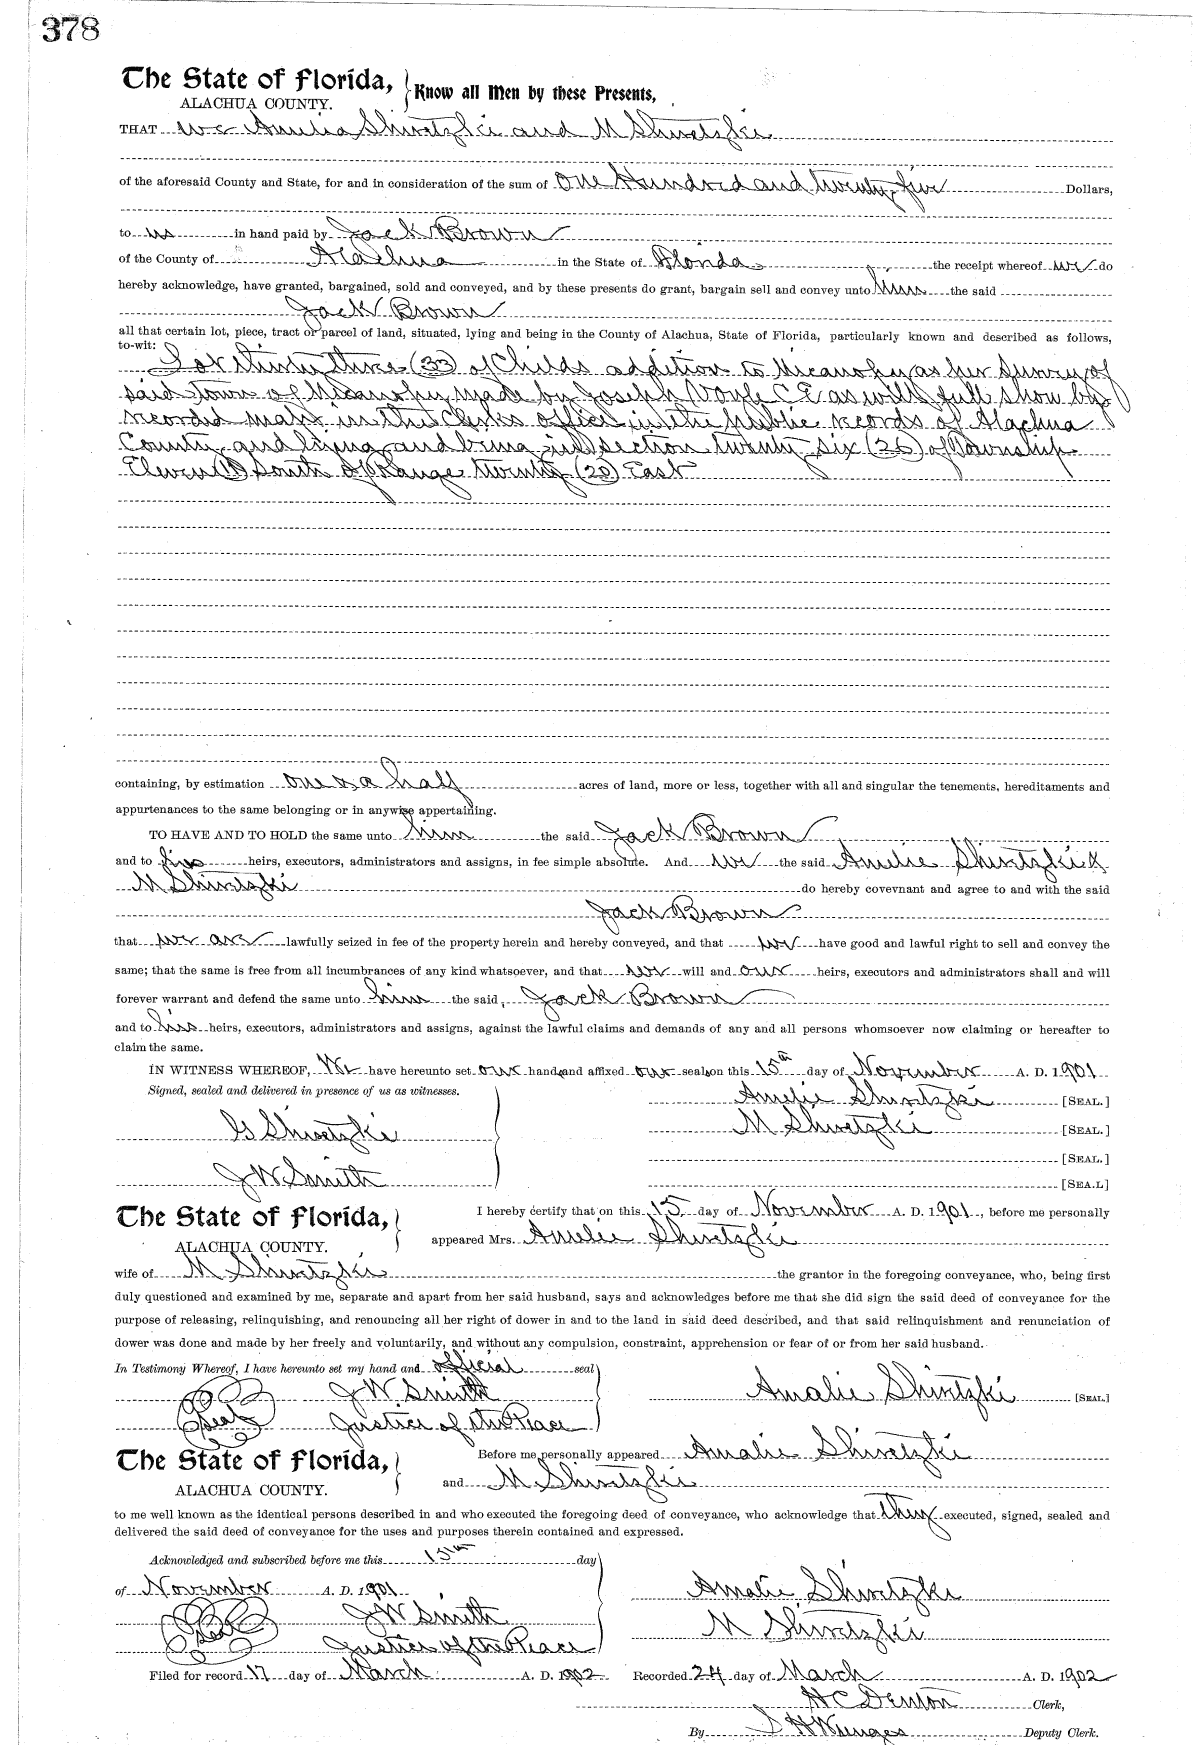 378
The State of Florida,
ALACHUA COUNTY.
Know all Men by these Presents,
THAT we Amelia Shivetzki and M Shivetzki
of the aforesaid County and State, for and in consideration of the sum of One Hundred and twenty five Dollars,
to us in hand paid by Jack Brown
of the County of Alachua in the State of Florida the receipt whereof we do
hereby acknowledge, have granted, bargained, sold and conveyed, and by these presents do grant, bargain sell and convey unto him the said
Jack Brown
all that certain lot, piece, tract or parcel of land, situated, lying and being in the County of Alachua, State of Florida, particularly known and described as follows,
to-wit:
Lot thirty three (33) of Childs addition to Micanopy as per Survey of
said town of Micanopy made by Joseph Voyle C E as will full show by
recorded map in the Clerks office in the public records of Alachua
County and lying and being in section twenty six (26) of Township
Eleven (11) South of Range twenty (20) East
containing, by estimation one & a half acres of land, more or less, together with all and singular the tenements, hereditaments and
appurtenances to the same belonging or in anywise appertaining.
TO HAVE AND TO HOLD the same unto him the said Jack Brown
and to his heirs, executors, administrators and assigns, in fee simple absolute. And we the said Amelie Shivetzki &
M Shivetzki do hereby covevnant and agree to and with the said
Jack Brown
that we are lawfully seized in fee of the property herein and hereby conveyed, and that we have good and lawful right to sell and convey the
same; that the same is free from all incumbrances of any kind whatsoever, and that we will and our heirs, executors and administrators shall and will
forever warrant and defend the same unto him the said, Jack Brown
and to his heirs, executors, administrators and assigns, against the lawful claims and demands of any and all persons whomsoever now claiming or hereafter to
claim the same.
IN WITNESS WHEREOF, We have hereunto set our hands and affixed our seals on this 15th day of November A. D. 1901
Signed, sealed and delivered in presence of us as witnesses.
Amelie Shivetzki [SEAL.]
G Shivetzki
M Shivetzki [SEAL.]
[SEAL.]
J W Smith
[SEA.L]
The State of Florida,
ALACHUA COUNTY.
I hereby certify that on this 15 day of November A. D. 1901, before me personally
appeared Mrs. Amelie Shivetzki
wife of M Shivetzki the grantor in the foregoing conveyance, who, being first
duly questioned and examined by me, separate and apart from her said husband, says and acknowledges before me that she did sign the said deed of conveyance for the
purpose of releasing, relinquishing, and renouncing all her right of dower in and to the land in said deed described, and that said relinquishment and renunciation of
dower was done and made by her freely and voluntarily, and without any compulsion, constraint, apprehension or fear of or from her said husband.
In Testimony Whereof, I have hereunto set my hand and official seal
J W Smith
Amalie Shivetzki [SEAL]
Seal Justice of the Peace
The State of Florida,
ALACHUA COUNTY.
Before me personally appeared Amalie Shivetzki
and M Shivetzki
to me well known as the identical persons described in and who executed the foregoing deed of conveyance, who acknowledge that they executed, signed, sealed and
delivered the said deed of conveyance for the uses and purposes therein contained and expressed.
Acknowledged and subscribed before me this 15th day
of November A. D. 1901
Amalie Shivetzki
J W Smith
M Shivetzki
Seal Justice of the Peace
Filed for record 17 day of March A. D. 1902 Recorded 24 day of March A. D. 1902
H C Denton Clerk,
By S H Wienges Deputy Clerk.